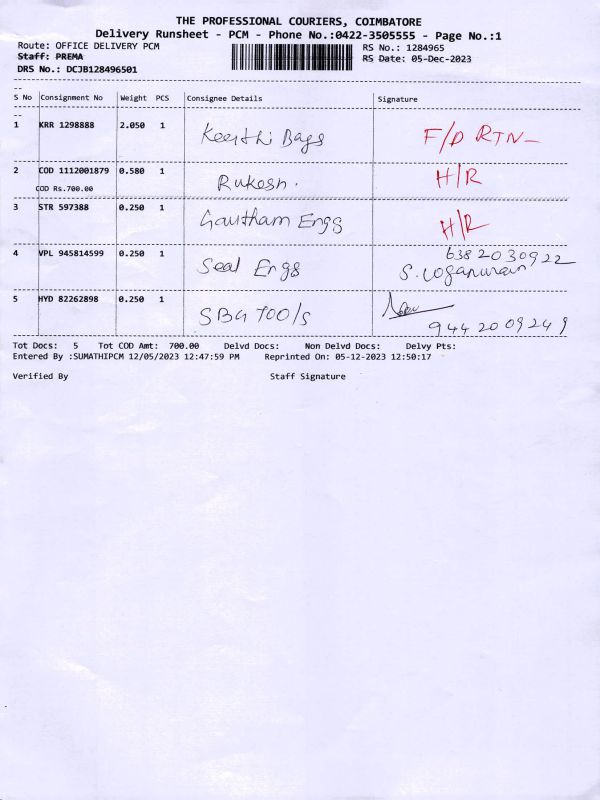 THE PROFESSIONAL COURIERS, COIMBATORE
Delivery Runsheet - PCM - Phone No.:0422-3505555 - Page No.:1
Route: OFFICE DELIVERY PCM RS No.: 1284965
Staff: PREMA RS Date: 05-Dec-2023
DRS No.: DCJB128496501
S No Consignment No Weight PCS Consignee Details Signature
1 KRR 1298888 2.050 1 Keerthi Bags F/D RTN
2 COD 1112001879 0.580 1 Rukesh. H/R
COD Rs.700.00
3 STR 597388 0.250 1 Gautham Engs H/R
4 VPL 945814599 0.250 1 Seal Engs 6382030922
S.
5 HYD 82262898 0.250 1 SBG Tools
9442009249
Tot Docs: 5 Tot COD Amt: 700.00 Delvd Docs: Non Delvd Docs: Delvy Pts:
Entered By :SUMATHIPCM 12/05/2023 12:47:59 PM Reprinted On: 05-12-2023 12:50:17
Verified By Staff Signature